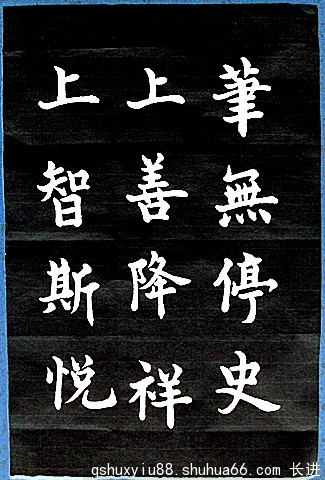 筆無停史
上善降祥
上智斯悅
qshuxyiu88.shuhua66.com 长进